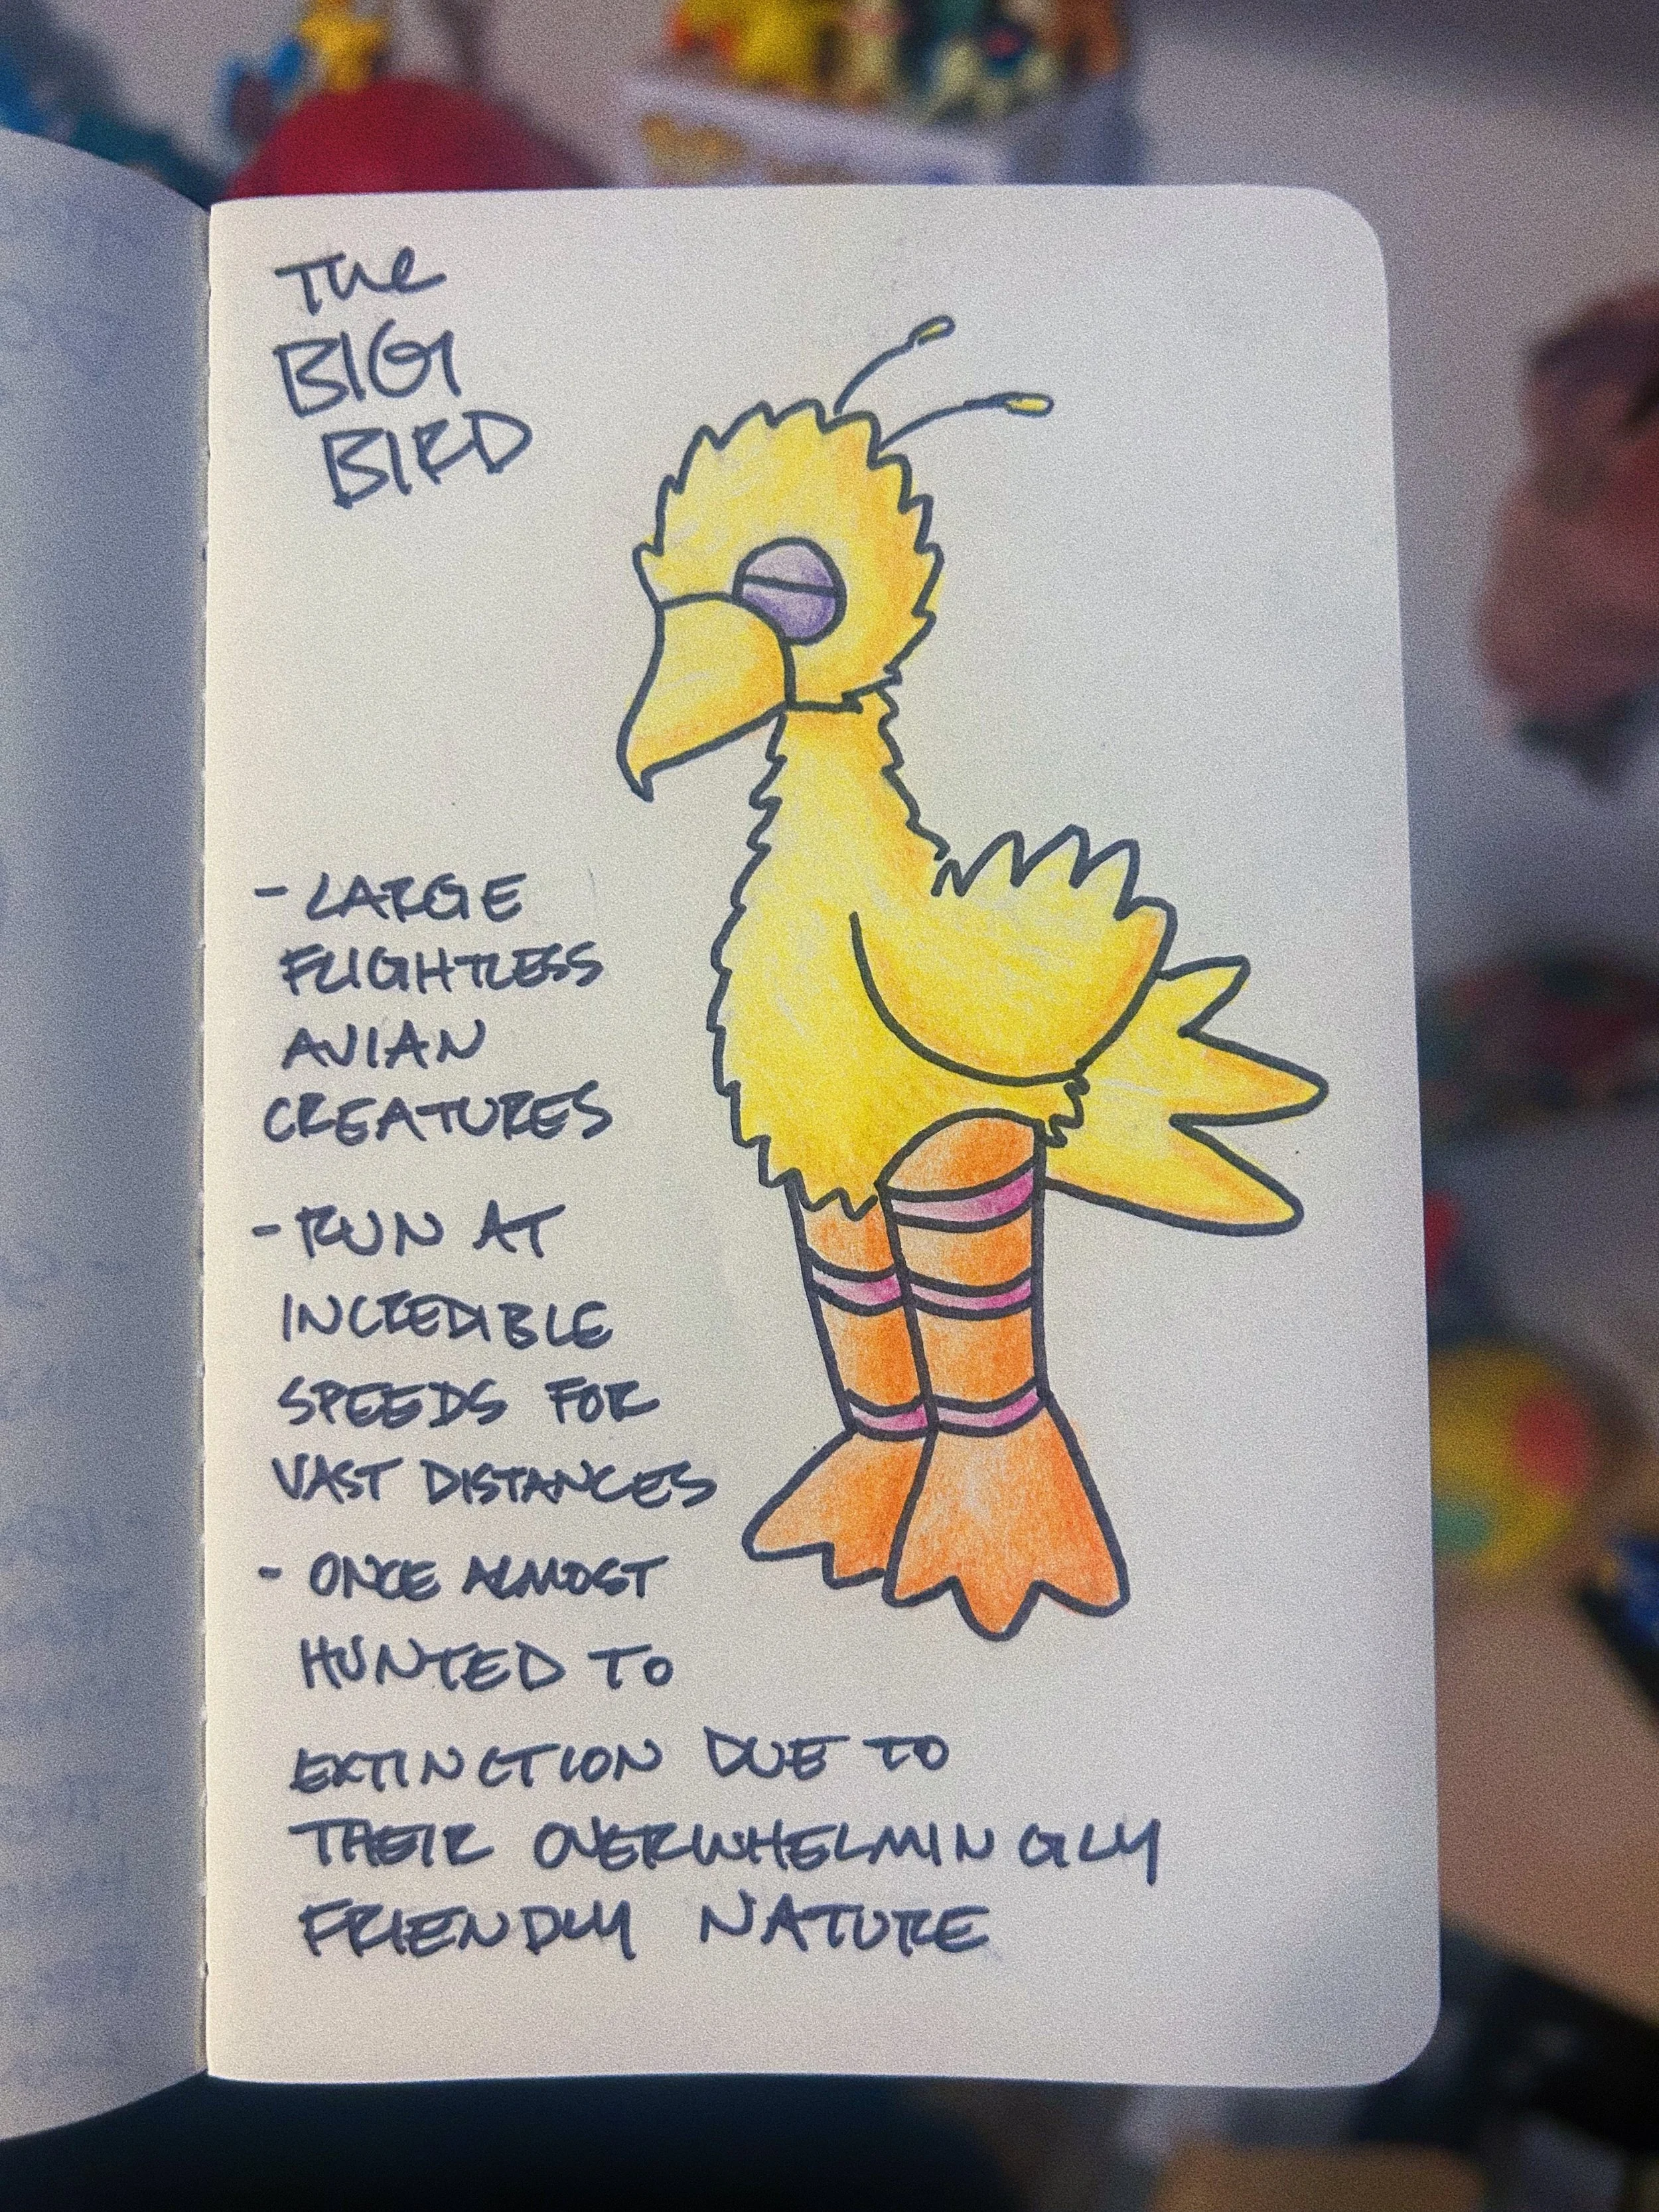 THE
BIG
BIRD
- LARGE
FLIGHTLESS
AVIAN
CREATURES
- RUN AT
INCREDIBLE
SPEEDS FOR
VAST DISTANCES
- ONCE ALMOST
HUNTED TO
EXTINCTION DUE TO
THEIR OVERWHELMINGLY
FRIENDLY NATURE